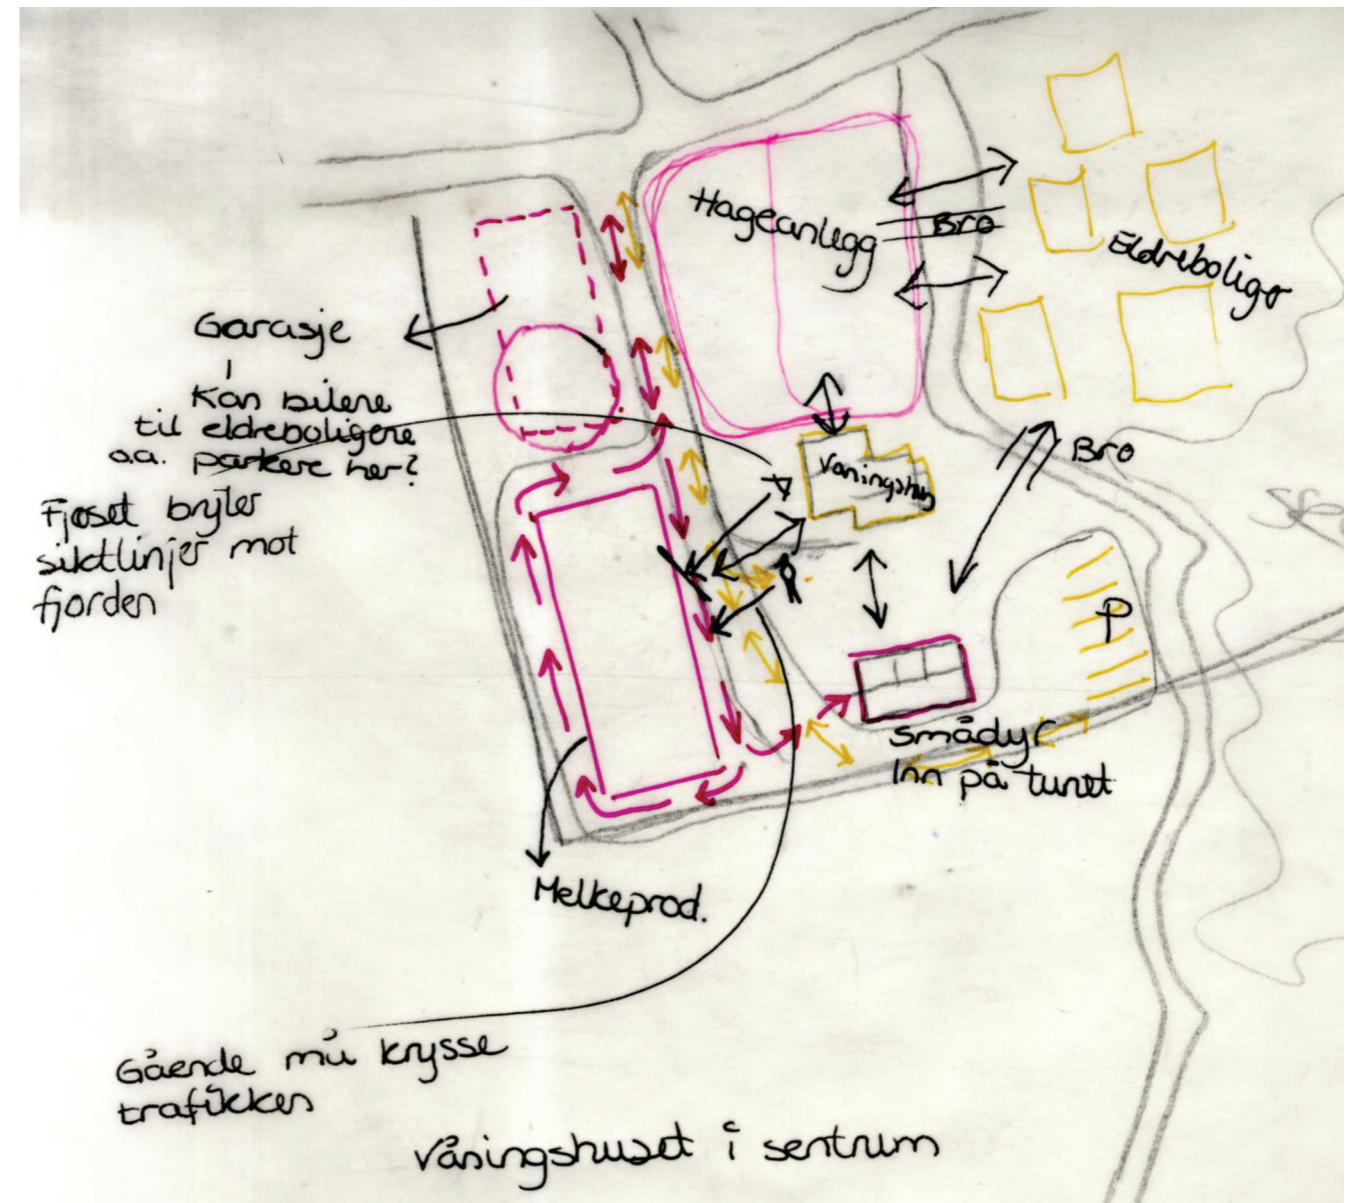 Hageanlegg
Bro
Eldreboliger
Garasje
Kan bilene
til eldreboligene
o.a. parkere her?
Fjøset bryter
siktlinjer mot
fjorden
Våningshus
Bro
P
Smådyr
Inn på tunet
Melkeprod.
Gående må krysse
trafikken
Våningshuset i sentrum